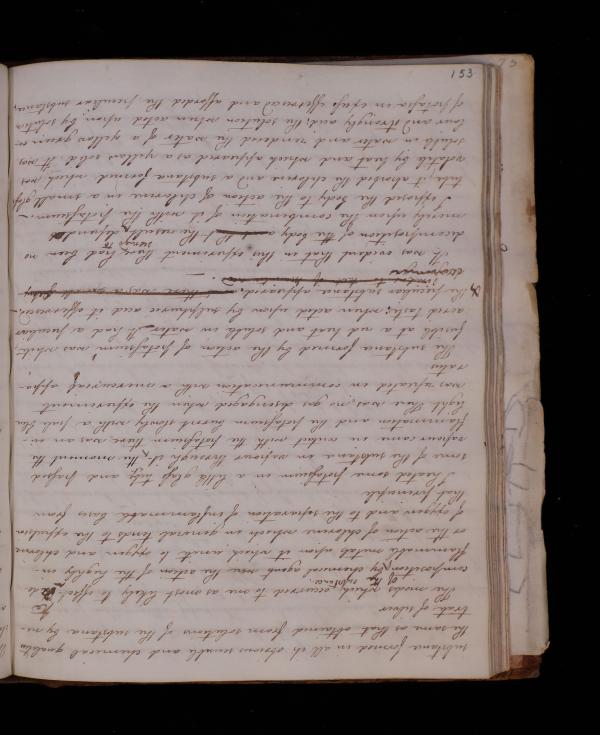 substance formed in all its obvious sensible and chemical qualities
the same as that obtained from solution of the substance by ni-
trate of silver
The modes which occurred to me as most likely to effect the de-
composition of the substance by chemical agents were the action of the highly in-
flammable metals upon it which unite to oxygen and chlorine
or the action of chlorine which in general tends to the expulsion
of oxygen and to the separation of inflammable bases from
that principle
I heated some potassium in a little glass tube and passed
some of the substance in vapour through it, the moment the
vapour came in contact with the potassium there was an in-
flammation and the potassium burnt slowly with a pale blue
light. there was no gas disengaged when the experiment
was repeated in communication with a mercurial appa-
ratus
The substance formed by the action of potassium was white,
fusible at a red heat and soluble in water. It had a peculiar
acrid taste; when acted upon by sulphuric acid it effervesced
& the peculiar substance appeared.
It was evident that in this experiment there had been no
decomposition of the body & that the results seemed to depend
merely upon the combination of it with the potassium.
I exposed the body to the action of chlorine in a small glass
tube, it absorbed the chlorine and a substance formed which was
volatile by heat and which appeared as a yellow solid it was
soluble in water and rendered the water of a yellow green co-
lour and strongly acid; the solution when acted upon by solution
of potassa in excess effervesced and afforded the peculiar substance.
153